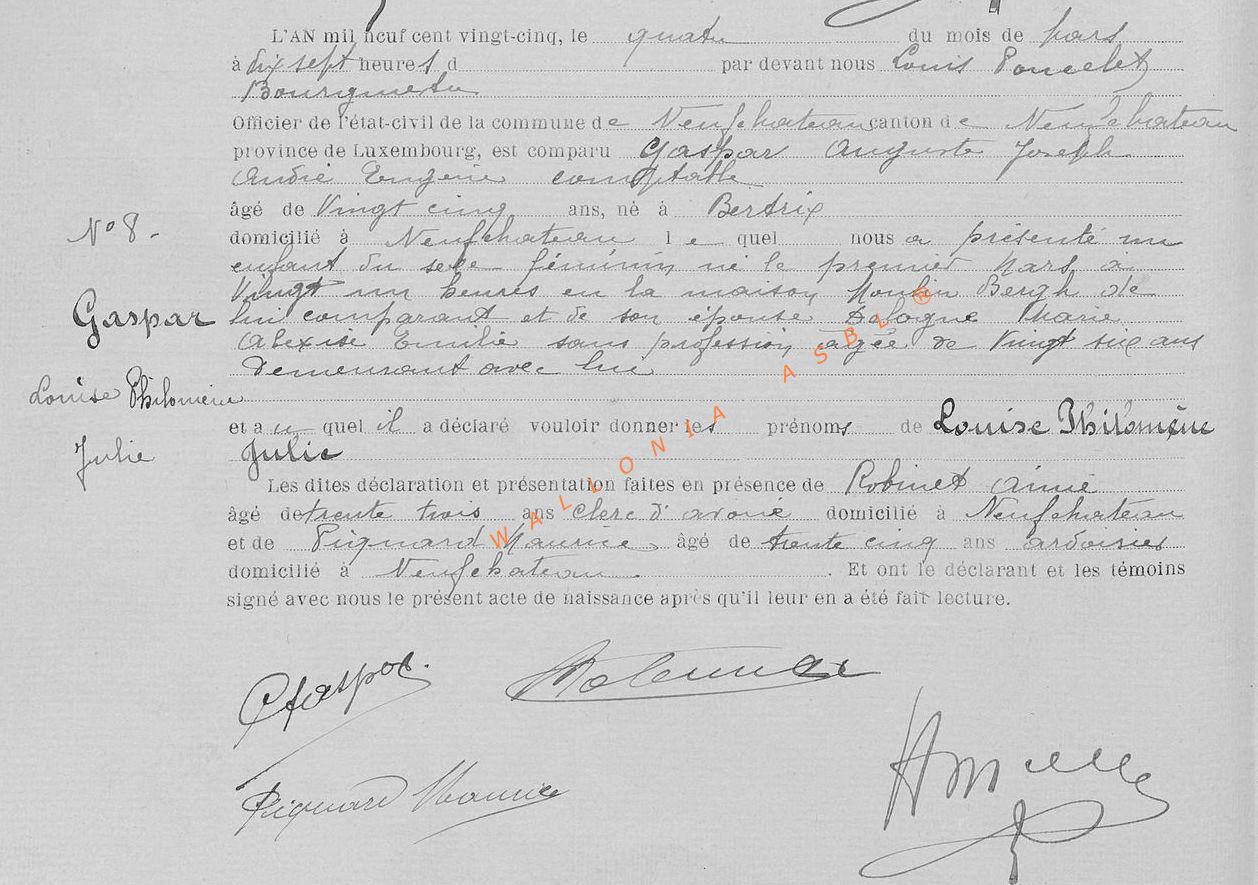 L'AN mil neuf cent vingt-cinq, le quatre du mois de Mars
à dix sept heures d par devant nous Louis Poncelet
Bourgmestre
Officier de l'état-civil de la commune de Neufchateau canton de Neufchateau
province de Luxembourg, est comparu Gaspar Auguste Joseph
André Eugène comptable
âgé de Vingt cinq ans, né à Bertrix
N° 8.
domicilié à Neufchateau le quel nous a présenté un
enfant du sexe féminin né le premier Mars à
Vingt un heures en la maison Moulin Bergh de
Gaspar
lui comparant et de son épouse Dologne Marie
Alexise Emilie sans profession agée de Vingt six ans
demeurant avec lui
Louise Philomène
et au quel il a déclaré vouloir donner les prénoms de Louise Philomène
Julie
Julie
Les dites déclaration et présentation faites en présence de Robinet Aimé
âgé de trente trois ans clerc d'avoué domicilié à Neufchateau
et de Pignard Maurice âgé de trente cinq ans ardoisier
domicilié à Neufchateau. Et ont le déclarant et les témoins
signé avec nous le présent acte de naissance après qu'il leur en a été fait lecture.
Gaspar.
Pignard Maurice
WALLONIA ASBL ®